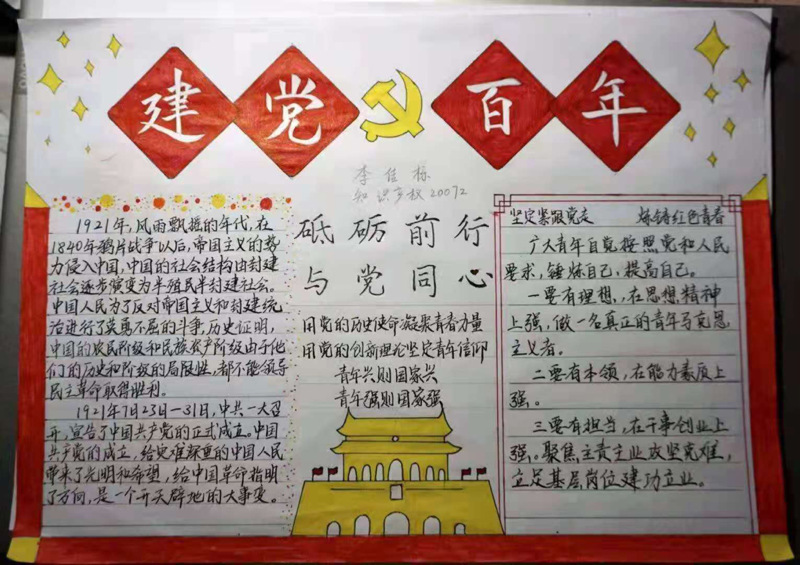 建党百年
李佳栋
知识产权20072
1921年,风雨飘摇的年代,在
1840年鸦片战争以后,帝国主义的势
力侵入中国,中国的社会结构由封建
社会逐步演变为半殖民半封建社会。
中国人民为了反对帝国主义和封建统
治进行了英勇不屈的斗争,历史证明,
中国的农民阶级和民族资产阶级由于他
们的历史和阶级的局限性,都不能领导
民主革命取得胜利。
1921年7月23日—31日,中共一大召
开,宣告了中国共产党的正式成立。中国
共产党的成立,给灾难深重的中国人民
带来了光明和希望,给中国革命指明
了方向,是一个开天辟地的大事变。
砥砺前行
与党同心
用党的历史使命凝聚青春力量
用党的创新理论坚定青年信仰
青年兴则国家兴
青年强则国家强
坚定紧跟党走 炼铸红色青春
广大青年自觉按照党和人民
要求,锤炼自己,提高自己。
一要有理想,在思想精神
上强,做一名真正的青年马克思
主义者。
二要有本领,在能力素质上
强。
三要有担当,在干事创业上
强。聚焦主责主业攻坚克难,
立足基层岗位建功立业。